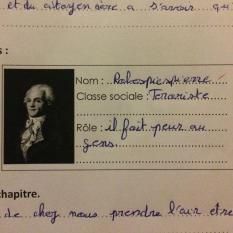 et du citoyen
s :
Nom : Robespierre
Classe sociale : Terariste
Rôle : il fait peur au
gens.
chapitre.
de chez nous prendre l'air et re